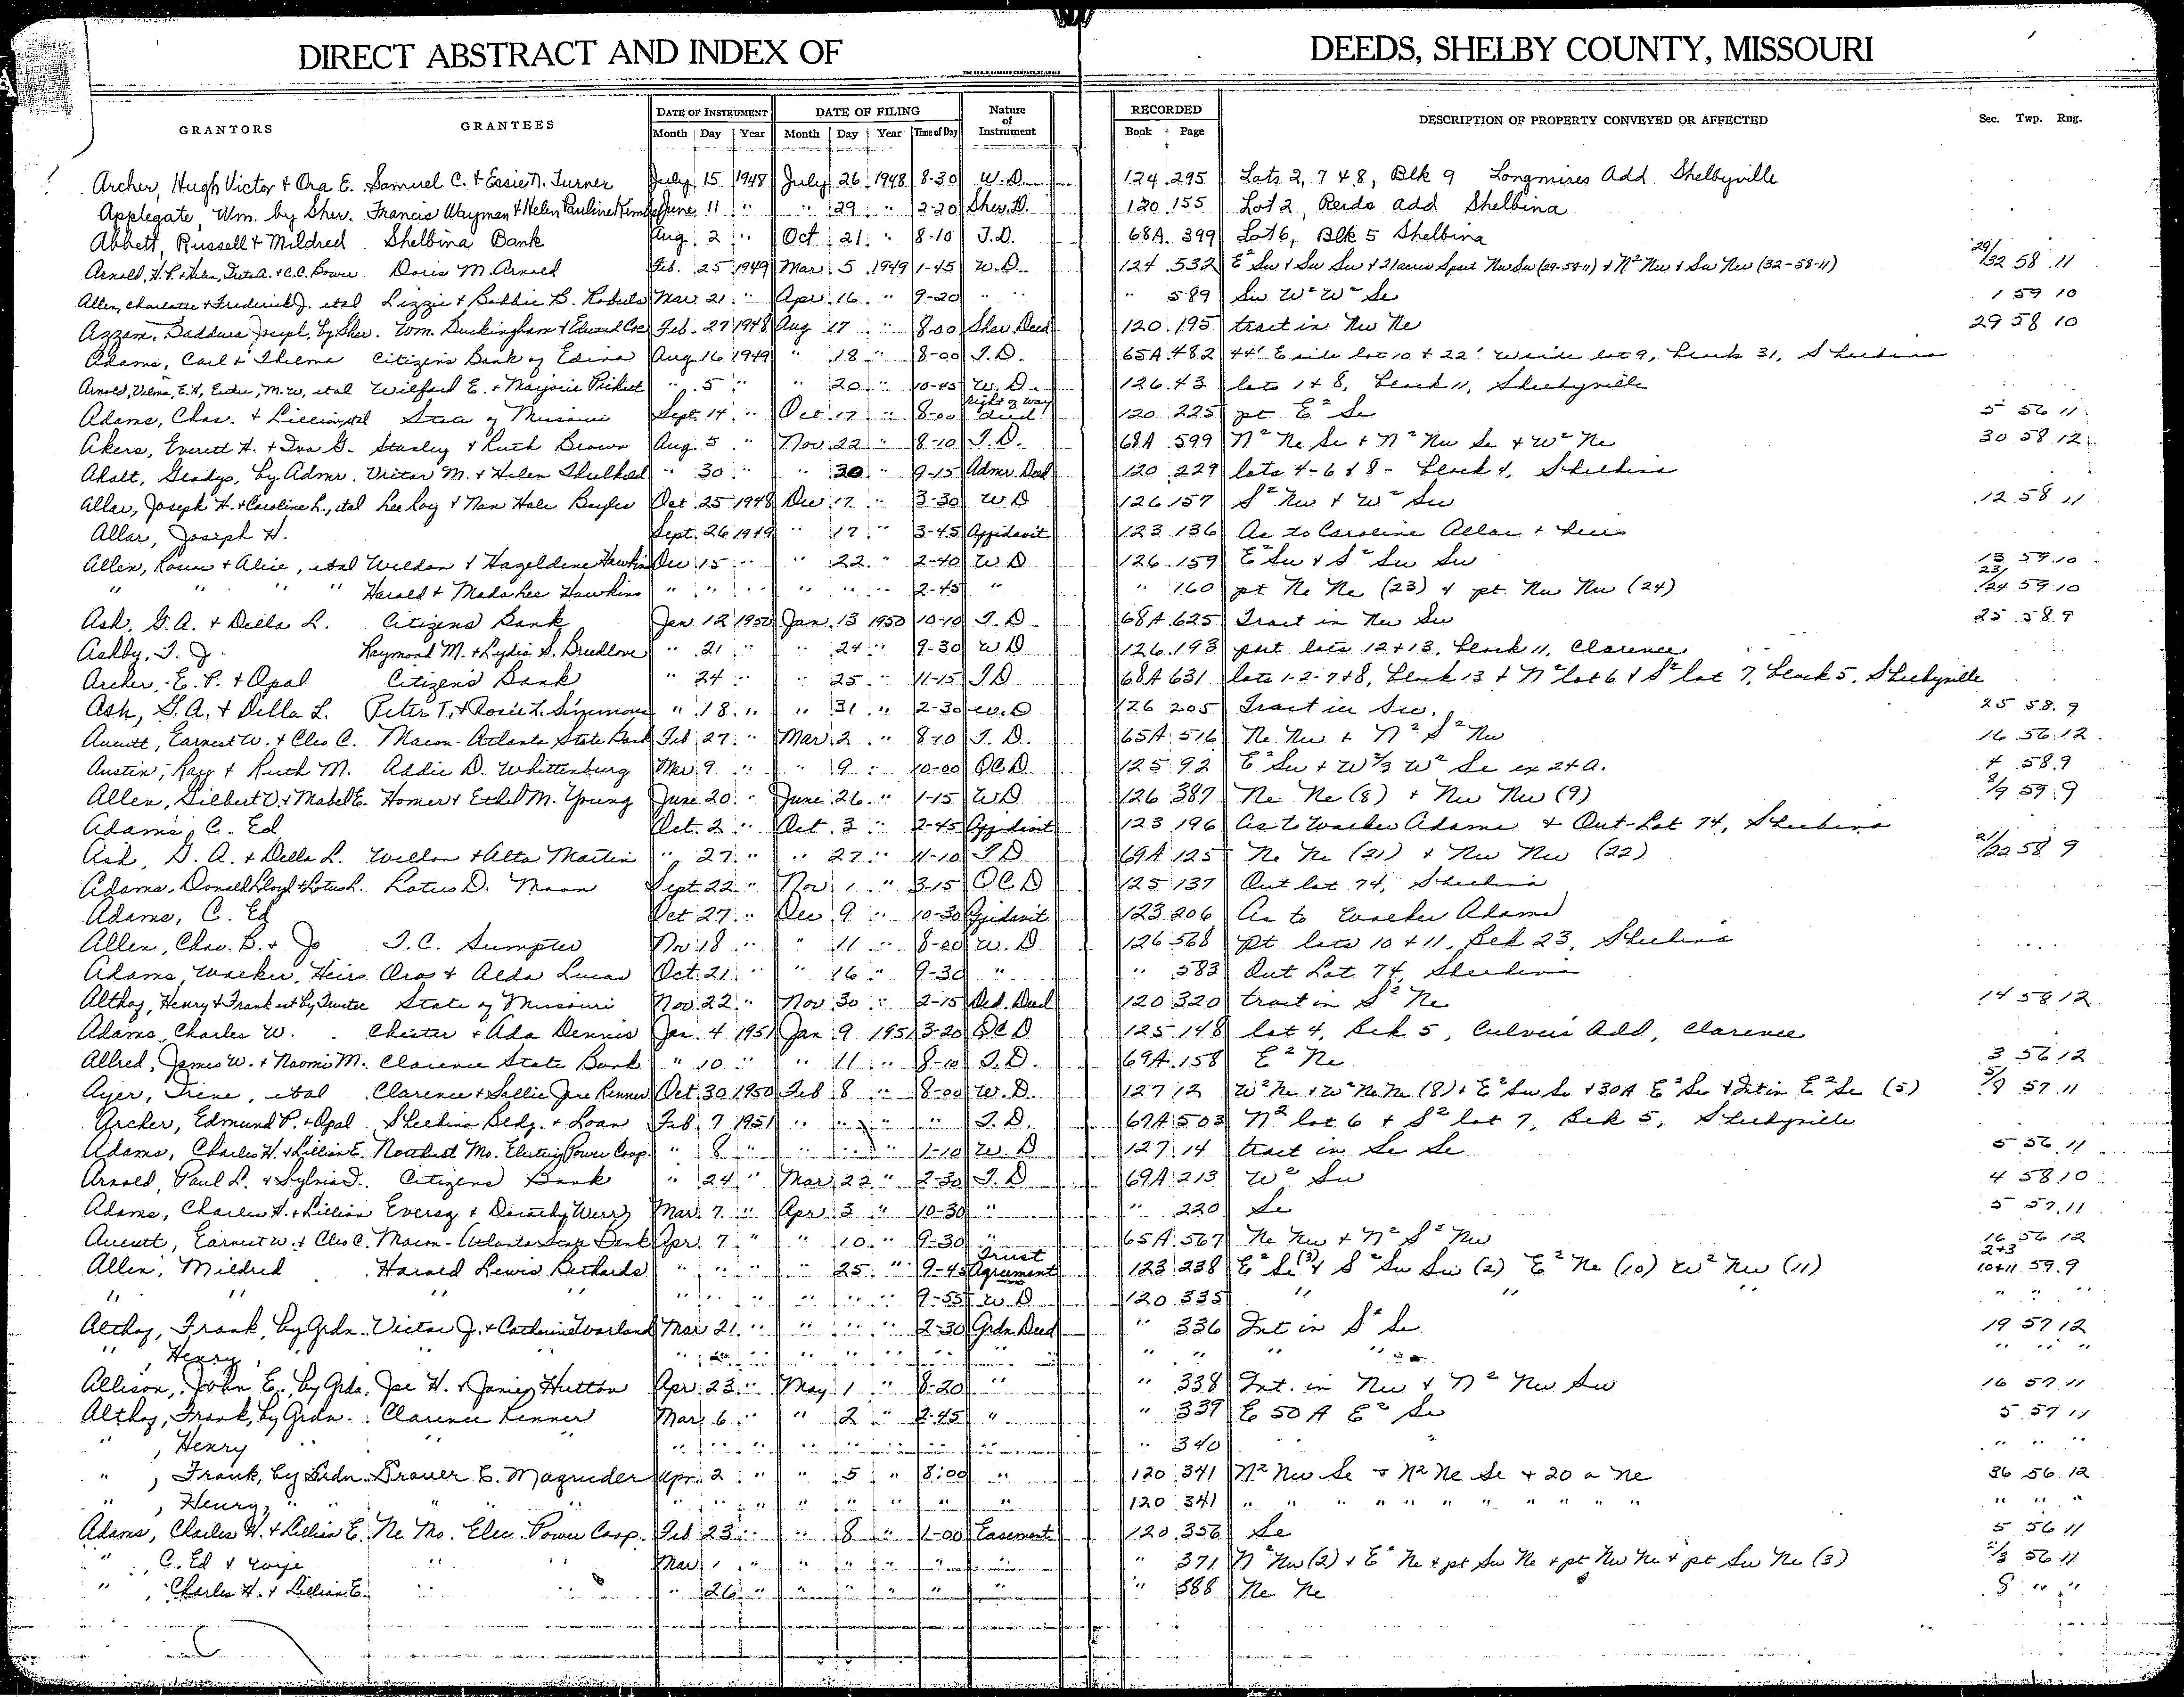 DIRECT ABSTRACT AND INDEX OF DEEDS, SHELBY COUNTY, MISSOURI
GRANTORS GRANTEES DATE OF INSTRUMENT DATE OF FILING Nature of Instrument RECORDED DESCRIPTION OF PROPERTY CONVEYED OR AFFECTED Sec. Twp. Rng.
Month Day Year Month Day Year Time of Day Book Page
Archer, Hugh Victor & Ora E. Samuel C. & Essie N. Turner July 15 1948 July 26 1948 8-30 W.D. 124 295 Lots 2, 7 & 8, Blk 9 Longmires Add Shelbyville
Applegate, Wm. by Sher. Francis Wayman & Helen Pauline June 11 " " 29 " 2-20 Sher. D. 120 155 Lot 2, Reids add Shelbina
Abbett, Russell & Mildred Shelbina Bank Aug. 2 " Oct 21 " 8-10 T.D. 68A 399 Lot 6, Blk 5 Shelbina
Arnold, H.P. & Helen, & C.C. Bower Doris M. Arnold Feb. 25 1949 Mar 5 1949 1-45 W.D. 124 532 E² Sw & Sw Sw & 21 acres S part Nw Sw (29-58-11) & N² Nw & Sw Nw (32-58-11) 29/32 58 11
Allen, Charlotte & Frederick J. etal Lizzie & Bobbie B. Roberts Mar 21 " Apr 16 " 9-20 " " " 589 Sw W² W² Se 1 59 10
Azzam, Baddura Joseph, by Sher. Wm. Buckingham & Edward Coe Feb. 27 1948 Aug 17 " 8-00 Sher. Deed 120 195 tract in Nw Ne 29 58 10
Adams, Carl & Thelma Citizens Bank of Edina Aug 16 1949 " 18 " 8-00 T.D. 65A 482 44' E side lot 10 & 22' W side lot 9, block 31, Shelbina
Arnold, Velma, E.H., M.W, etal Wilford E. & Marjorie Pickett " 5 " " 20 " 10-45 W.D. 126 43 lots 1 & 8, block 11, Shelbyville
Adams, Chas. & Lillian, etal State of Missouri Sept. 14 " Oct. 17 " 8-00 Right of way deed 120 225 pt E² Se 5 56 11
Akers, Everett H. & Iva G. Stanley & Ruth Brown Aug. 5 " Nov. 22 " 8-10 T.D. 68A 599 N² Ne Se & N² Nw Se & W² Ne 30 58 12
Ahalt, Gladys, by Admr. Victor M. & Helen " 30 " " 30 " 9-15 Admr. Deed 120 229 lots 4-6 & 8 - block 4, Shelbina
Allar, Joseph H. & Caroline L., etal Lee Roy & Nan Hale Bayles Oct 25 1948 Dec 17 " 3-30 WD 126 157 S² Nw & W² Sw 12 58 11
Allar, Joseph H. Sept. 26 1949 " 17 " 3-45 Affidavit 123 136 As to Caroline Allar & heirs
Allen, & Alice, etal Weldon & Hazeldene Hawkins Dec 15 " " 22 " 2-40 WD 126 159 E² Sw & S² Sw Sw 13 59 10
" " " " Harold & Hawkins " " " " " " 2-45 " " 160 pt Ne Ne (23) & pt Nw Nw (24) 23/24 59 10
Ash, G.A. & Della L. Citizens Bank Jan 12 1950 Jan. 13 1950 10-10 T.D. 68A 625 Tract in Nw Sw 25 58 9
Ashby, T. J. Raymond M. & Lydia S. Breedlove " 21 " " 24 " 9-30 WD 126 193 part lots 12 & 13, block 11, Clarence
Archer, E. P. & Opal Citizens Bank " 24 " " 25 " 11-15 TD 68A 631 lots 1-2-7 & 8, block 13 & N² lot 6 & S² lot 7, block 5, Shelbyville
Ash, G.A. & Della L. Peter T. & Rosie L. " 18 " " 31 " 2-30 W.D 126 205 Tract in Sw. 25 58 9
Avcutt, Earnest W. & Cleo C. Macon-Atlanta State Bank Feb 27 " Mar 2 " 8-10 T.D. 65A 516 Ne Nw & N² S² Nw 16 56 12
Austin, Ray & Ruth M. Addie D. Whittenburg Mar 9 " " 9 " 10-00 QCD 125 92 E² Sw & W⅔ W² Se ex 24 A. 4 58 9
Allen, Gilbert V. & Mabel E. Homer & Ethel M. Young June 20 " June 26 " 1-15 WD 126 387 Ne Ne (8) & Nw Nw (9) 8/9 59 9
Adams, C. Ed Oct. 2 " Oct. 3 " 2-45 Affidavit 123 196 As to Walker Adams & Out-Lot 74, Shelbina
Ash, G. A. & Della L. Weldon & Alta Martin " 27 " " 27 " 11-10 TD 69A 125 Ne Ne (21) & Nw Nw (22) 21/22 58 9
Adams, Donald Lloyd & Lotus L. Lotus D. Moon Sept 22 " Nov 1 " 3-15 QCD 125 137 Out lot 74, Shelbina
Adams, C. Ed Oct 27 " Dec 9 " 10-30 Affidavit 123 206 As to Walker Adams
Allen, Chas. B. & Jo T.C. Sumpter Nov 18 " " 11 " 8-00 W.D 126 568 pt lots 10 & 11, Blk 23, Shelbina
Adams, Walker, Heirs Oras & Alda Lucas Oct. 21 " " 16 " 9-30 " " 583 Out Lot 74, Shelbina
Althoy, Henry & Frank est by Trustee State of Missouri Nov 22 " Nov 30 " 2-15 Ded. Deed 120 320 tract in S² Ne 14 58 12
Adams, Charles W. Chester & Ada Dennis Jan. 4 1951 Jan 9 1951 3-20 QCD 125 148 lot 4, Blk 5, Culvers Add, Clarence
Allred, James W. & Naomi M. Clarence State Bank " 10 " " 11 " 8-10 T.D. 69A 158 E² Ne 3 56 12
Ayer, Irene, etal Clarence & Sallie Jane Renner Oct 30 1950 Feb 8 " 8-00 W.D. 127 12 W² Ne & W² Ne Ne (8) & E² Sw Se & 30A E² Se & Int in E² Se (5) 5/8 57 11
Archer, Edmund P. & Opal Shelbina Bldg. & Loan Feb. 7 1951 " " " " T.D. 67A 503 N² lot 6 & S² lot 7, Blk 5, Shelbyville
Adams, Charles H. & Lillian E. Northeast Mo. Electric Power Coop. " 8 " " " " 1-10 W.D 127 14 tract in Se Se 5 56 11
Arnold, Paul L. & Sylvia I. Citizens Bank " 24 " Mar 22 " 2-30 T.D 69A 213 W² Sw 4 58 10
Adams, Charles H. & Lillian & Dorothy Mar. 7 " Apr 3 " 10-30 " " 220 Se 5 57 11
Avcutt, Earnest W. & Cleo C. Macon-Atlanta State Bank Apr. 7 " " 10 " 9-30 " 65A 567 Ne Nw & N² S² Nw 16 56 12
Allen, Mildred Harold Lewis Richards " " " " 25 " 9-45 Trust Agreement 123 238 E² Se (3) & S² Sw Sw (2) E² Ne (10) W² Nw (11) 2+3 10+11 59 9
" " " " " " " " " 9-55 W.D 120 335 " " " " " "
Althoy, Frank, by Grdn. Victor J. & Catherine Mar 21 " " " " 2-30 Grdn Deed " 336 Int in S² Se 19 57 12
" , Henry, " " " " " " " " " " " " " " "
Allison, John E., by Grdn. Joe H. & Hutton Apr 23 " May 1 " 8-20 " " 338 Int. in Nw & N² Nw Sw 16 57 11
Althoy, Frank, by Grdn. Clarence Renner Mar. 6 " " 2 " 2-45 " " 339 E 50 A E² Se 5 57 11
" , Henry " " " " " " " " " " 340 " " " " "
" , Frank, by Grdn. B. Magruder Apr. 2 " " 5 " 8:00 " 120 341 N² Nw Se & N² Ne Se & 20 a Ne 36 56 12
" , Henry, " " " " " " " " " " 120 341 " " " " " " " " " " " " " "
Adams, Charles H. & Lillian E. Ne Mo. Elec. Power Coop. Feb 23 " " 8 " 1-00 Easement 120 356 Se 5 56 11
" , C. Ed & wife " " Mar 1 " " " " " " " 371 N² Nw (2) & E² Ne & pt Sw Ne & pt Nw Ne & pt Sw Ne (3) 2/3 56 11
" , Charles H. & Lillian E. " " " 26 " " " " " " " 388 Ne Ne 8 " "